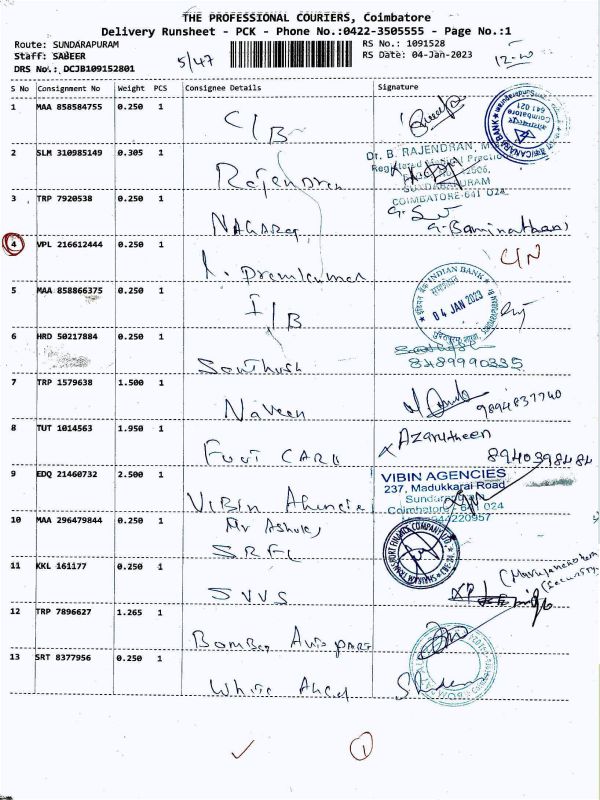 THE PROFESSIONAL COURIERS, Coimbatore
Delivery Runsheet - PCK - Phone No.:0422-3505555 - Page No.:1
Route: SUNDARAPURAM
RS No.: 1091528
Staff: SABEER
5/47
RS Date: 04-Jan-2023
DRS No.: DCJB109152801
S No Consignment No Weight PCS Consignee Details Signature
1 MAA 858584755 0.250 1
C/B
CANARA BANK
641 021
2 SLM 310985149 0.305 1
Rajendran
Dr. B. RAJENDRAN,
SUNDARAPURAM
COIMBATORE-641 024
3 TRP 7920538 0.250 1
NAGARAJ
4 VPL 216612444 0.250 1
Premkumar
C/N
5 MAA 858866375 0.250 1
I/B
INDIAN BANK
04 JAN 2023
6 HRD 50217884 0.250 1
Santhosh
8489990335
7 TRP 1579638 1.500 1
Naveen
9894837740
8 TUT 1014563 1.950 1
Foot CARE
Azarutheen
8940398484
9 EDQ 21460732 2.500 1
Vibin Agencies
VIBIN AGENCIES
237, Madukkarai Road
Coimbatore - 641 024
10 MAA 296479844 0.250 1
Mr Ashok,
SRFL
SHRIRAM TRANSPORT FINANCE COMPANY LTD.
11 KKL 161177 0.250 1
SVVS
(Security)
12 TRP 7896627 1.265 1
Bombay Auto parts
13 SRT 8377956 0.250 1
White
1